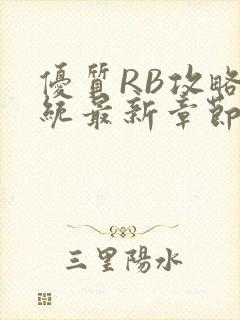 優質RB攻略
統最新章節
三里陽水